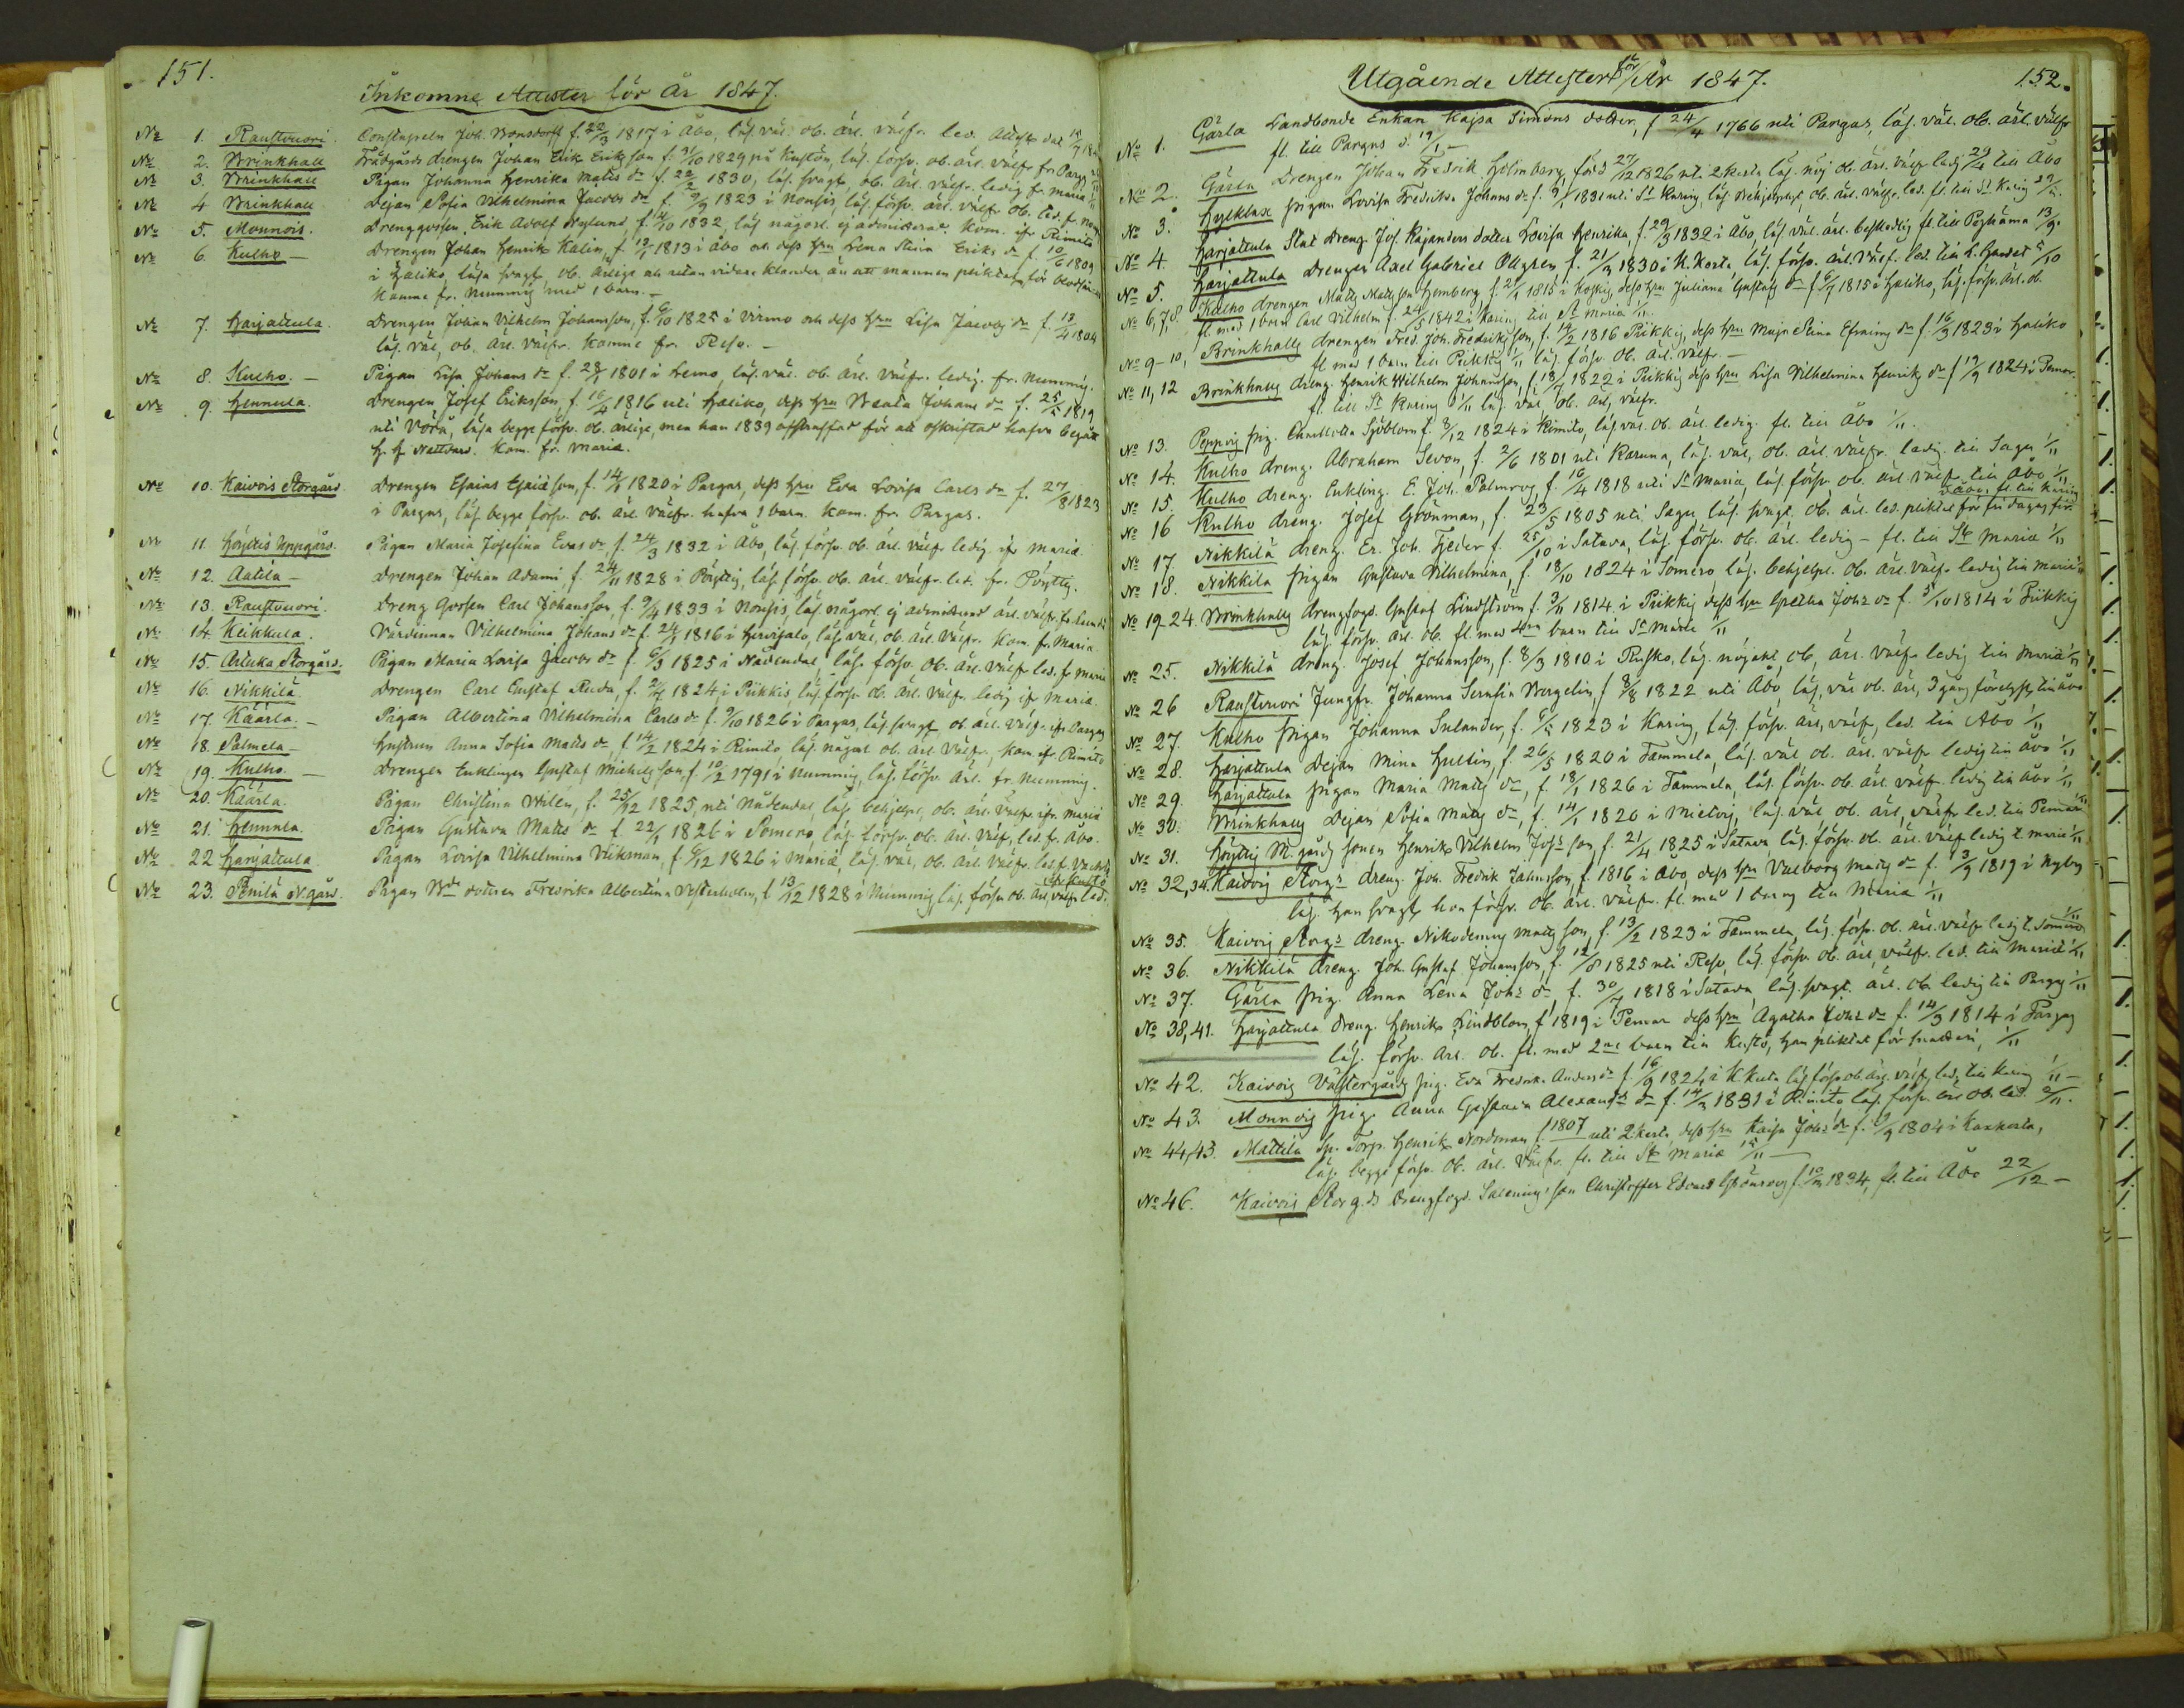 151.
Inkomne Attester för År 1847.
No 1. Raustvuori. Constapeln Joh. Bonsdorff f. 22/3 1817 i Åbo, läs. väl. ob. ärl. välfr. led. Attest dat.
No 2. Brinkhall Trädgårds drengen Johan Erik Eriksson f. 31/10 1829 på Kustön, läs. försv. ob. ärl. välfr. fr Parg.
No 3. Brinkhall Pigan Johanna Henrika Matts dr f. 22/2 1830, läs. svagt, ob. ärl. välfr. ledig fr. Maria
No 4 Brinkhall Dejan Sofia Vilhelmina Jacobs dr f. 9/9 1823 i Nousis, läs. försv. ärl. välfr. ob. led. f.
No 5. Monnois. Drenggossen, Erik Adolf Nylund, f. 14/10 1832, läs någorl. ej admitterad. Kom. ifr Rimito
No 6. Kulho — Drengen Johan Henrik Kalin, f. 19/1 1813 i Åbo och dess hru Lena Stina Eriks dr f. 10/6 1809
i Haliko, läsa svagt ob. ärlige utan vidare klander, än att mannen pliktat för
Komne fr. Nummis med 1 barn. —
No 7. Harjattula. Drengen Johan Vilhelm Johansson, f. 6/10 1825 i Virmo och dess hru Lisa Jacobs dr f. 13/4 1804
läs. väl, ob. ärl. välfr. Komne fr. Reso. —
No 8. Kulho. — Pigan Lisa Johans dr f. 28/1 1801 i Lemo, läs. väl. ob. ärl. välfr. ledig. fr. Nummis.
No 9. Hennula. Drengen Josef Eriksson, f. 16/4 1816 uti Haliko, dess hru Johans dr f. 25/5 1819
uti Vörå, läsa begge försv. ob. ärlige, men han 1839 afstraffad för att oskriftad hafva begått
H. H. Nattvard. Kom. fr. Maria.
No 10. Kaivois Storgård. Drengen Esaias Esaiæson, f. 14/1 1820 i Pargas, dess hru Eva Lovisa Carls dr f. 27/8 1823
i Pargas, läs. begge försv. ob. ärl. välfr. hafva 1 barn. Kom. fr. Pargas.
No 11. Höyttis Uppgård. Pigan Maria Josefina Evas dr f. 24/3 1832 i Åbo, läs. försv. ob. ärl. välfr. ledig. ifr Maria.
No 12. Aatila — Drengen Johan Adami f. 24/11 1828 i Pöytis, läs. försv. ob. ärl. välfr. led. fr. Pöyttis.
No 13. Raustvuori. Dreng Gossen Carl Johansson, f. 9/4 1833 i Nousis, läs. någorl. ej admitterad ärl. välfr.
No 14. Keikkula. Värdinnan Vilhelmina Johans dr f. 24/5 1816 i Hirvisalo, läs. väl, ob. ärl. välfr. Kom. fr. Maria.
No 15. Artuka Storgård. Pigan Maria Lovisa Jacobs dr f. 6/3 1825 i Nådendal, läs. försv. ob. ärl. välfr. led. f. Maria
No 16. Nikkilä. Drengen Carl Gustaf Ruda, f. 1824 i Pikkis, läs. försv. ob. ärl. välfr. ledig ifr Maria.
No 17. Käärla. — Pigan Albertina Vilhelmina Carls dr f. 9/10 1826 i Pargas, läs svagt, ob. ärl. välfr. ifr Pargas
No 18. Salmela — Hustrun Anna Sofia Matts dr, f. 14/2 1824 i Rimito, läs. någorl ob. ärl välfr, kom ifr Rimito
No 19. Kulho. — Drengen Enklingen Gustaf Michelsson f. 10/2 1791 i Nummis, läs. försv. ärl. fr. Nummis.
No 20. Käärla. Pigan Christina Wilén, f. 25/12 1825, uti Nådendal, läs. behjelpl. ob. ärl. välfr. ifr. Maria
No 21. Hennula. Pigan Gustava Matts dr f. 22/1 1826 i Somero, läs. försv. ob. ärl. välfr. led. fr. Åbo.
No 22 Harjattula. Pigan Lovisa Vilhelmina Wikman, f. 6/12 1826 i Mariæ, läs. väl, ob. ärl. välfr. led. f.
No 23. Penilä N.gård. Pigan Bde dottren Fredrika Albertina Vesterholm, f. 13/12 1828 i Nummis, läs. försv. ob. ärl, välfr led. ifr Kustö
152.
Utgående Attester för År 1847.
No 1. Gärla Landbonde Enkan Kajsa Simons dotter, f 24/4 1766 uti Pargas, läs. väl. ob. ärl. välfr
fl. till Pargas d. 19/1 —
No 2. Gärla Drengen Johan Fredrik Holmberg, född 27/12 1826 uti Zkarta läs. nöj ob. ärl. välfr ledig 29/4 till Åbo
No 3. Hylklax pigan Lovisa Fredrika Johans dr f. 9/1 1831 uti St Karins, läs. behjelpligt, ob. ärl. välfr, led. fl. till St Karins
No 4. Harjattula Stat Dreng. Joh. Rajanders dotter Lovisa Henrika, f. 29/3 1832 i Åbo, läs väl. ärl. beskedlig fl. till Pöyhämä 13/9.
No 5. Harjattula Drengen Axel Gabriel Ollgren f. 21/3 1830 i N. Korta, läs. försv. ärl. välfr. led. till 5/10
No 6,7,8 Kulho drengen Matts Mattsson Hemberg f. 1815 i Koskis, dess hru Juliana Gustafs dr f. 6/9 1815 i Haliko, läs. försv. ärl. ob.
fl. med 1 barn Carl Vilhelm f. 24/5 1842 i Karins till St Maria 1/11.
No 9-10, Brinkhalls drengen Fred. Joh. Fredriksson, f. 14/2 1816 Pikkis, dess hru Maja Stina Efraims dr f. 16/3 1823 i Haliko
fl. med 1 barn till Pikkis 1/11 läs. försv. ob. ärl. välfr. —
No 11, 12 Brinkhalls dreng. Henrik Wilhelm Johansson, f. 18/7 1822 i Piikkis dess hru Lisa Vilhelmina Henriks dr f 19/9 1824 i Pemar.
fl. till St Karins 1/11 läs. väl ob. ärl, välfr.
No 13. pig. Charlotta Sjöblom f. 8/12 1824 i Kimito, läs. väl. ob. ärl. ledig. fl. till Åbo 1/11.
No 14. Kulho dreng. Abraham Sevon, f. 2/6 1801 uti Karuna, läs. väl, ob. ärl. välfr. ledig. till Sagu 1/11
No 15. Kulho dreng. Enkling. E. Joh. Palmroos, f. 16/4 1818 uti St Maria, läs. försv. ob. ärl. välfr till Åbo 1/11
No 16 Kulho dreng. Josef Grönman, f. 23/5 1805 uti Sagu, läs. svagt. ob. ärl. led. pliktat för fri dagas
No 17. Nikkilä dreng. Er. Joh. Fjeder f. 25/10 i Satava, läs. försv. ob. ärl. ledig — fl. till Stæ Maria 1/11
No 18. Nikkilä pigan Gustava Vilhelmina, f. 18/10 1824 i Somero, läs. behjelpl. ob. ärl. välfr ledig till Maria
No 19-24. Brinkhalls drengfogd. Gustaf Lindström f. 3/11 1814 i Piikkis dess hru Gretha Johs dr f. 5/10 1814 i Piikkis
läs. försv. ärl. ob. fl. med 4ra barn till St Mariæ 1/11
No 25. Nikkilä dreng. Josef Johansson, f. 8/3 1810 i Rusko, läs. nöjakt, ob, ärl. välfr ledig till Maria 1/11
No 26 Raustvuori Jungfr. Johanna Serafia Bergelin, f 8/8 1822 uti Åbo, läs, väl ob. ärl, 3 gång förelyst, till Åbo
No 27. Kulho pigan Johanna Sulander, f. 6/5 1823 i Karins, läs. försv. ärl, välfr, led. till Åbo 1/11
No 28. Harjattula Dejan Mina Hultin, f. 26/5 1820 i Tammela, läs. väl ob. ärl. välfr. ledig till Åbo 1/11
No 29. Harjattula pigan Maria Matts dr, f. 18/1 1826 i Tammela, läs. försv. ob. ärl. välfr. ledig till Åbo 1/11
No 30. Brinkhalls Dejan Sofia Matts dr, f. 14/1 1820 i Mietois, läs. väl ob. ärl, välfr led. till Pemar 1/11
No 31. Höyttis M.gårds sonen Henrik Vilhelm Johs son, f. 21/4 1825 i Satava läs. försv. ob. ärl. välfr ledig t. Maria 1/11
No 32,34. Kaivois Storgs dreng. Joh. Fredrik f. 1816 i Åbo, dess hru Valborg Matts dr f. 13/9 1819 i Nyby
läs. han svagt hon försv. ob. ärl. välfr. fl. med 1 barn till Maria 1/11
No 35. Kaivois Storgs dreng. Nikodemus Mattsson, f. 13/2 1823 i Tammela, läs. försv. ob. ärl. välfr ledig t. Somero 1/11
No 36. Nikkilä dreng. Joh. Gustaf Johansson, f. 12/8 1825 uti Reso, läs. försv. ob. ärl, välfr. led. till Mariæ 1/11
No 37. Gärla pig. Anna Lena Johs dr, f. 30/7 1818 i Satava, läs. svagt. ärl. ob. ledig till Pargas 1/11
No 38,41. Harjattula dreng. Henrik Lindblom, f 1819 i Pemar dess hru Agatha Johs dr f. 14/3 1814 i Pargas
läs. försv. ärl. ob. fl. med 2ne barn till Kustö, han pliktat för snatteri, 1/11
No 42. Kaivois Västergårds pig. Eva Fredrika Anders dr f. 16/9 1824 i N.Korta läs försv. ob. ärl. välfr, led, till Karins 1/11 —
No 43. Monnois pig. Anna Gustava Alexandrs dr f. 14/3 1831 i Rimito läs. försv. ärl ob. led. 2/11.
No 44,45. Mattila Sp. Torp. Henrik Nordman f 1807 uti Zkarta, dess hru Kajsa Johs dr f. 6/9 1804 i Kaxkerta,
läs. begge försv. ob. ärl. välfr. fl. till Stæ Mariæ 15/11 —
No 46. Kaivois Storg.ds drengfogd. son Christoffer Edvard Grönroos f. 1834, fl. till Åbo 22/12 —